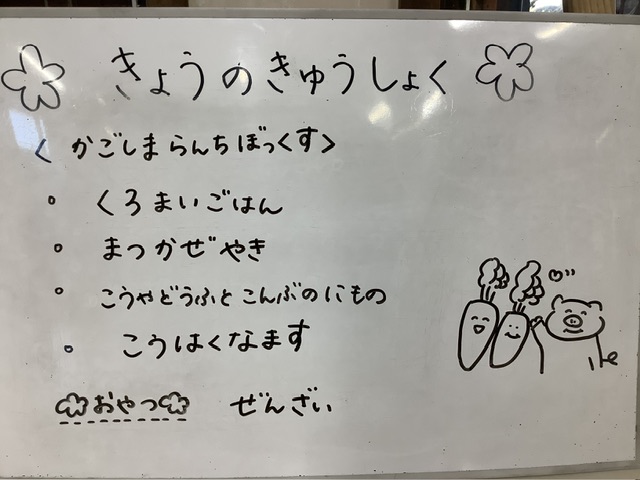 きょうのきゅうしょく
<かごしまらんちぼっくす>
・くろまいごはん
・まつかぜやき
・こうやどうふとこんぶのにもの
・こうはくなます
おやつ ぜんざい